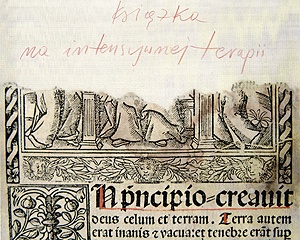 książka
na intensywnej terapii
IN pn̄cipio creauit
deus celum et terram. Terra autem
erat inanis ⁊ vacua: et tenebre erāt sup